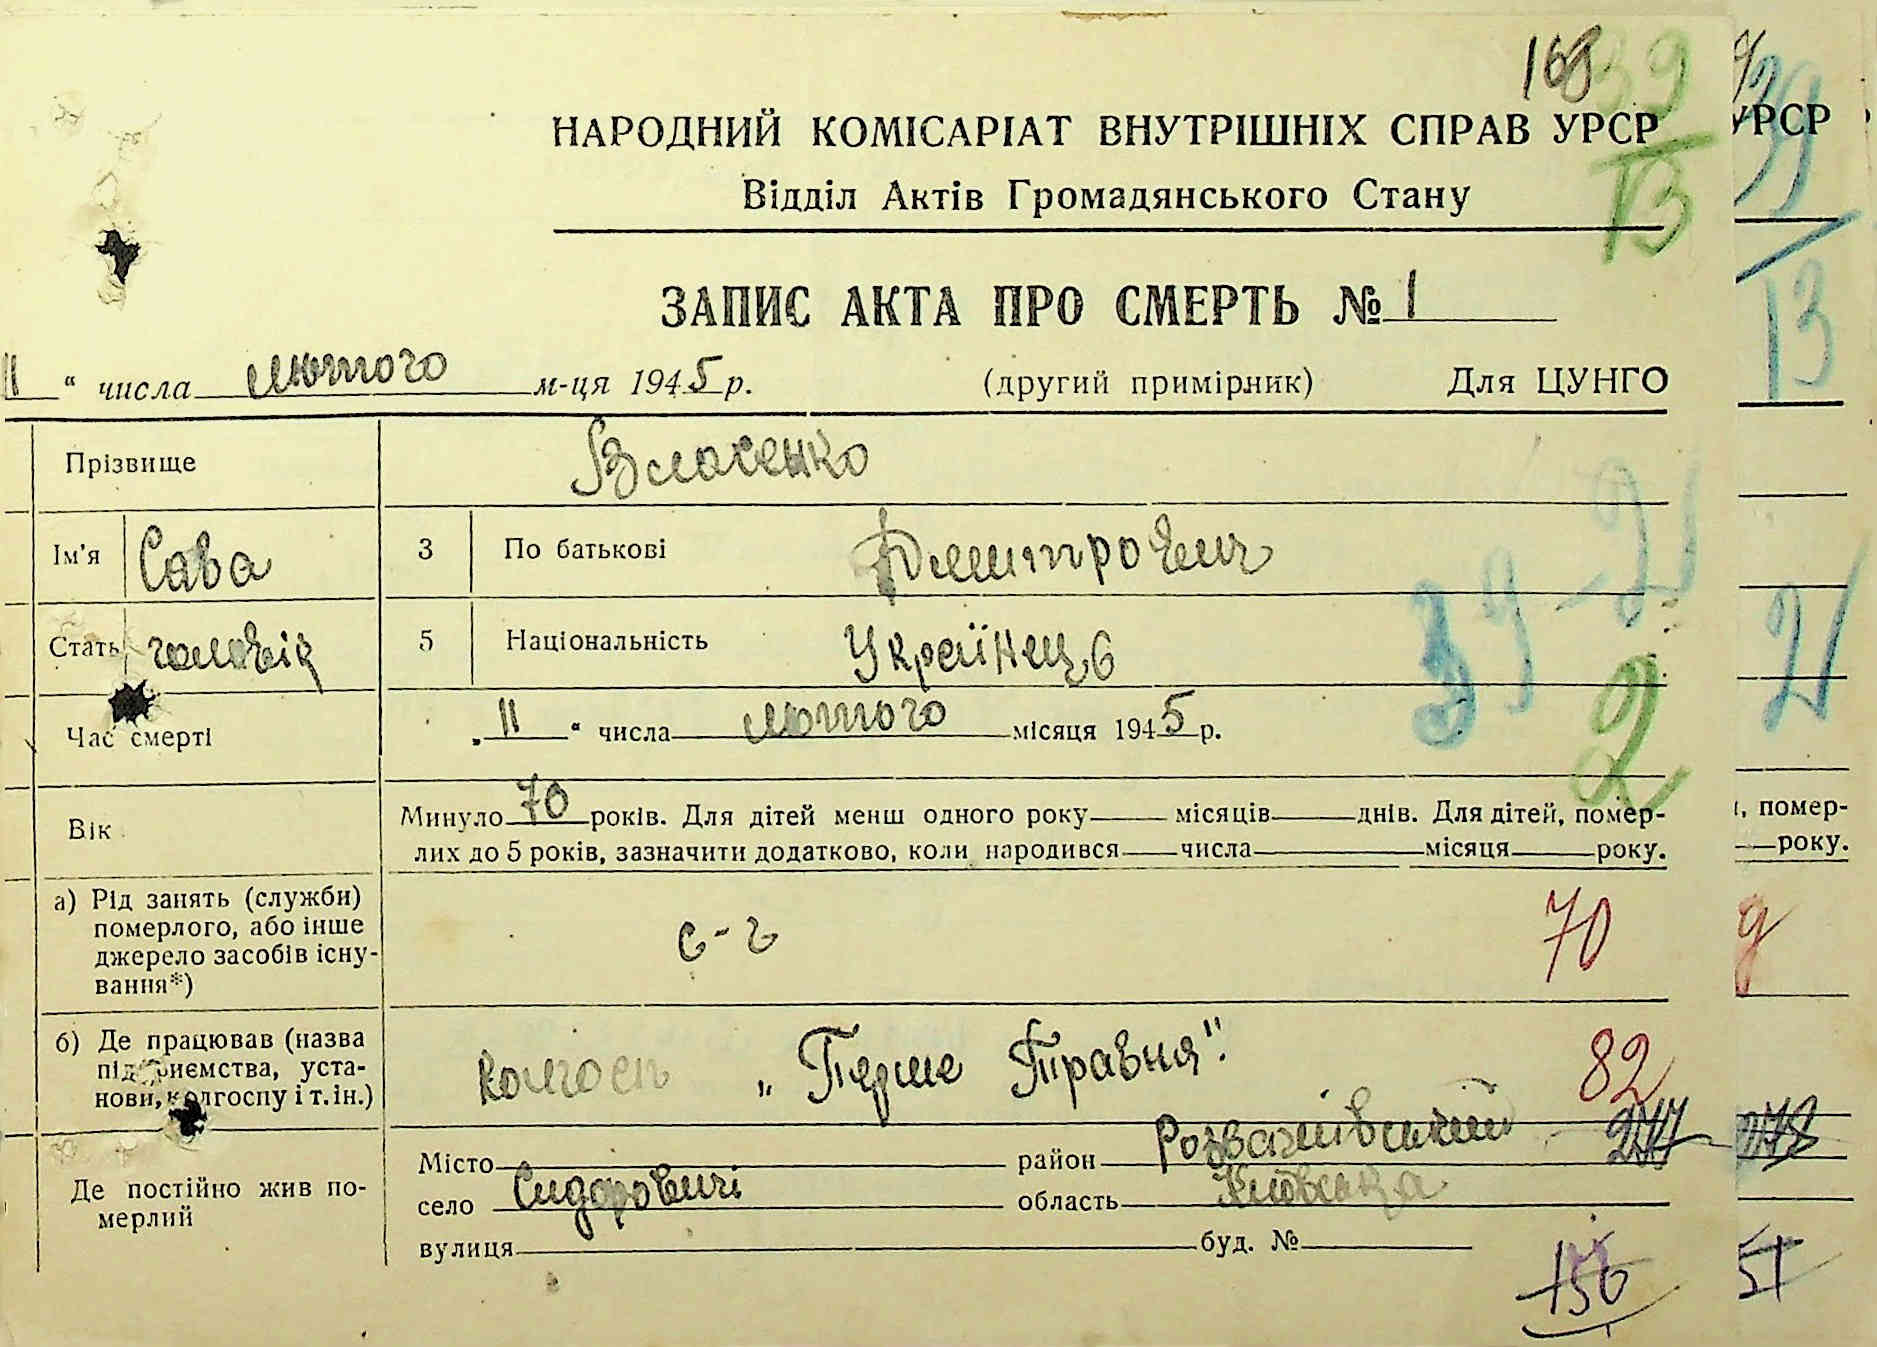 168 39
НАРОДНИЙ КОМІСАРІАТ ВНУТРІШНІХ СПРАВ УРСР
УРСР
39
Відділ Актів Громадянського Стану
13
ЗАПИС АКТА ПРО СМЕРТЬ № 1
13
11 “ числа лютого м-ця 1945 р. (другий примірник) Для ЦУНГО
Прізвище Власенко
Ім'я Сава 3 По батькові Дмитрович
39-21
Стать чоловік 5 Національність Українець
21
2
Час смерті „11“ числа лютого місяця 1945 р.
Вік Минуло 70 років. Для дітей менш одного року місяців днів. Для дітей, помер-
лих до 5 років, зазначити додатково, коли народився числа місяця року.
, помер-
року.
а) Рід занять (служби)
померлого, або інше
джерело засобів існу-
вання*)
с-г
70
б) Де працював (назва
підприємства, уста-
нови, колгоспу і т. ін.)
колгосп „Перше Травня".
82
277 278
Де постійно жив по-
мерлий
Місто район Розважівський
село Сидоровичі область Київська
вулиця буд. №
156 51